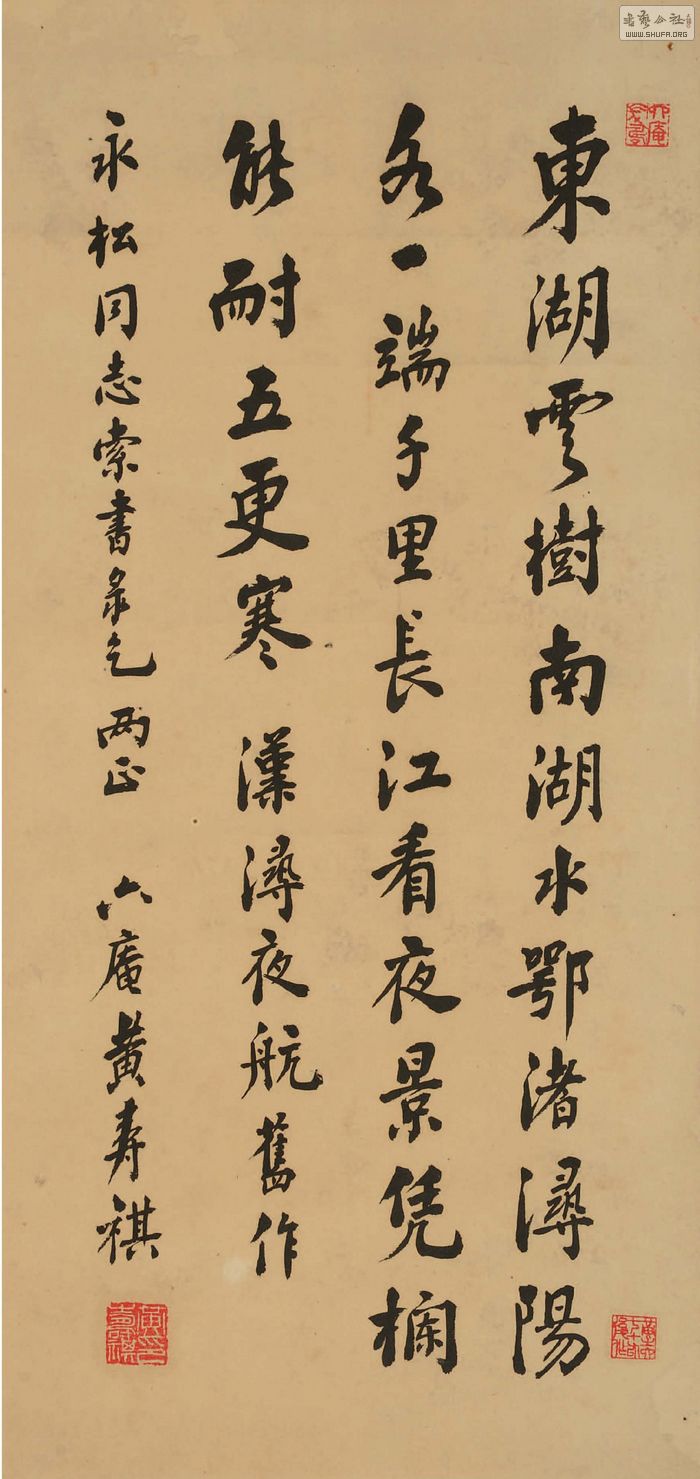 東湖雲樹南湖水鄂渚潯陽
各一端千里長江看夜景凭欄
能耐五更寒 漢潯夜航舊作
永松同志索書录乞 两正 六庵黄寿祺
書藝公社
WWW.SHUFA.ORG